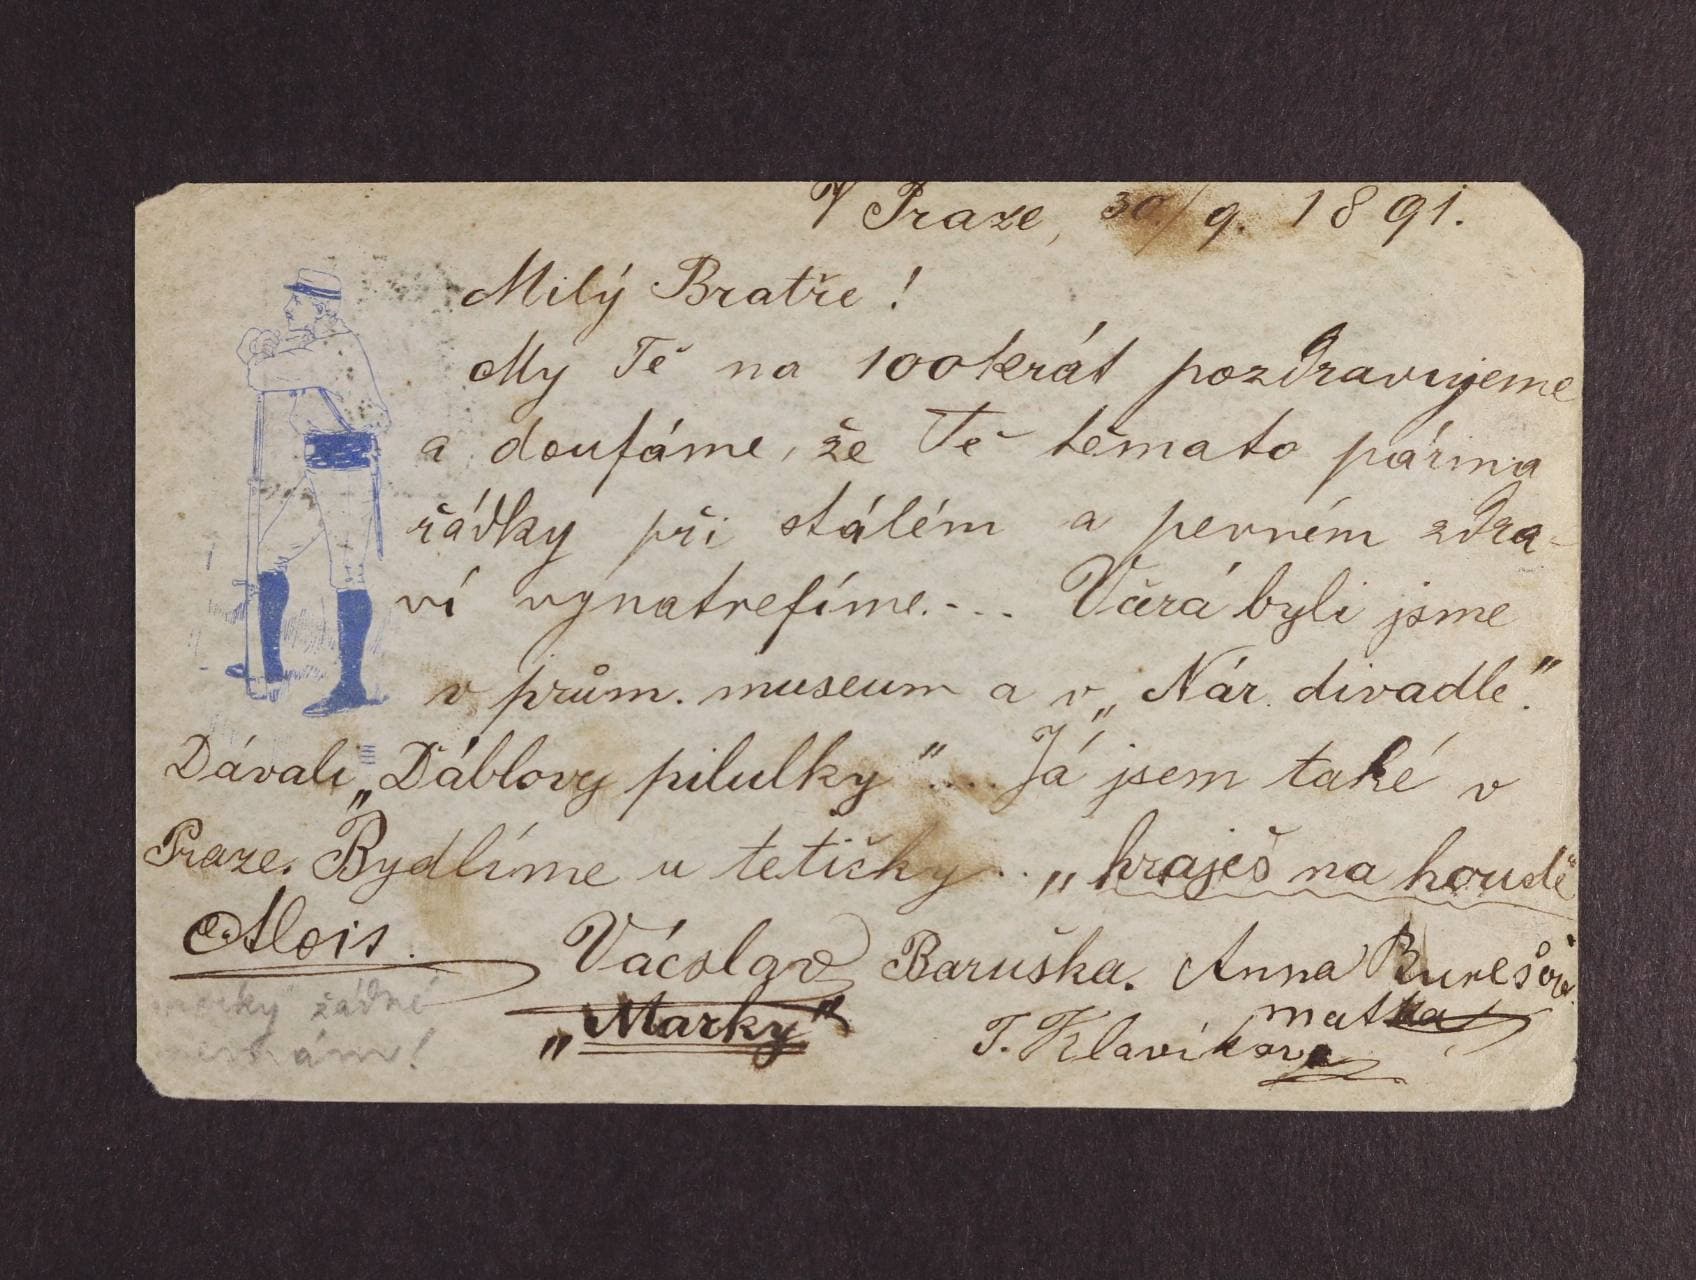 V Praze, 30/9. 1891.
Milý Bratře!
My Tě na 100krát pozdravujeme
a doufáme, že Tě těmato párma
řádky při stálém a pevném zdra-
ví vynatrefíme.-.. Včrá byli jsme
v prům. museum a v „Nár. divadle."
Dávali „Dáblovy pilulky"... Já jsem také v
Praze. Bydlíme u tetičky... „hraješ na houdě
Alois. Vácslav Baruška. Anna Burešova
matka
„Marky" T. Klavíkova
žádné
nemám!